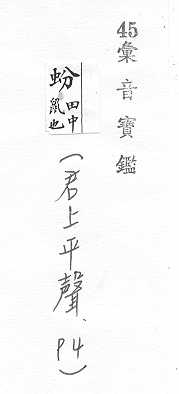 45彙音寶鑑
蚡田中鼠也
(君上平聲、P4)